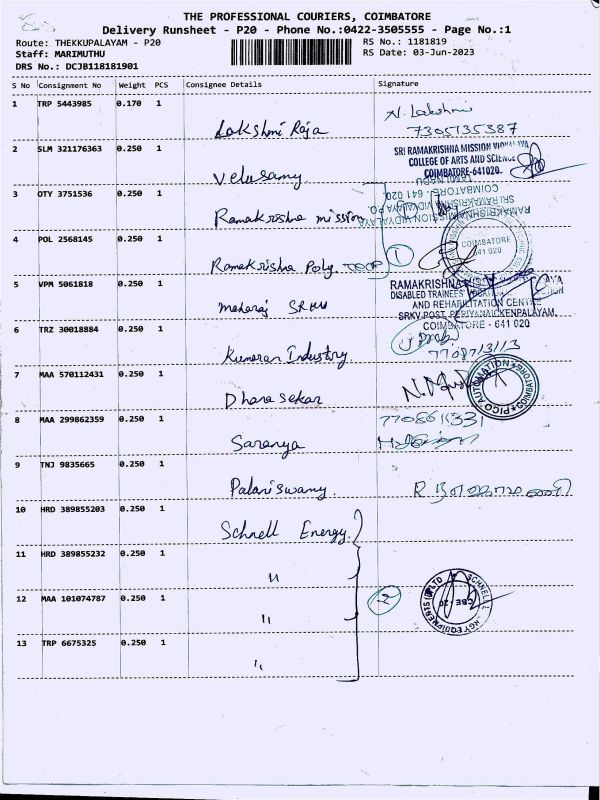 THE PROFESSIONAL COURIERS, COIMBATORE
Delivery Runsheet - P20 - Phone No.:0422-3505555 - Page No.:1
Route: THEKKUPALAYAM - P20
RS No.: 1181819
Staff: MARIMUTHU
RS Date: 03-Jun-2023
DRS No.: DCJB118181901
S No Consignment No Weight PCS Consignee Details Signature
1 TRP 5443985 0.170 1 Lakshmi Raja N. Lakshmi
7305135387
2 SLM 321176363 0.250 1 Velusamy
SRI RAMAKRISHNA MISSION
COLLEGE OF ARTS AND SCIENCE
COIMBATORE-641020.
3 OTY 3751536 0.250 1 Ramakrishna mission
RAMAKRISHNA MISSION VIDYALAYA
SRI RAMAKRISHNA VIDYALAYA PO.
COIMBATORE. 641 020.
TAMIL NADU
4 POL 2568145 0.250 1 Ramakrishna Poly. 1
COIMBATORE
641 020
5 VPM 5061818 0.250 1 Maharaj SRMV
RAMAKRISHNA
DISABLED TRAINEES'
AND REHABILITATION CENTRE
SRKV POST, PERIYANAICKENPALAYAM,
COIMBATORE - 641 020
6 TRZ 30018884 0.250 1 Kumaran Industry.
7 MAA 570112431 0.250 1 Dhanasekar
PICO AUTOMATION COIMBATORE
8 MAA 299862359 0.250 1 Saranya
9 TNJ 9835665 0.250 1 Palaniswamy
10 HRD 389855203 0.250 1 Schnell Energy.
11 HRD 389855232 0.250 1 "
12 MAA 101074787 0.250 1 " 2
SCHNELL
EQUIPMENTS (P) LTD
CBE - 20
13 TRP 6675325 0.250 1 "